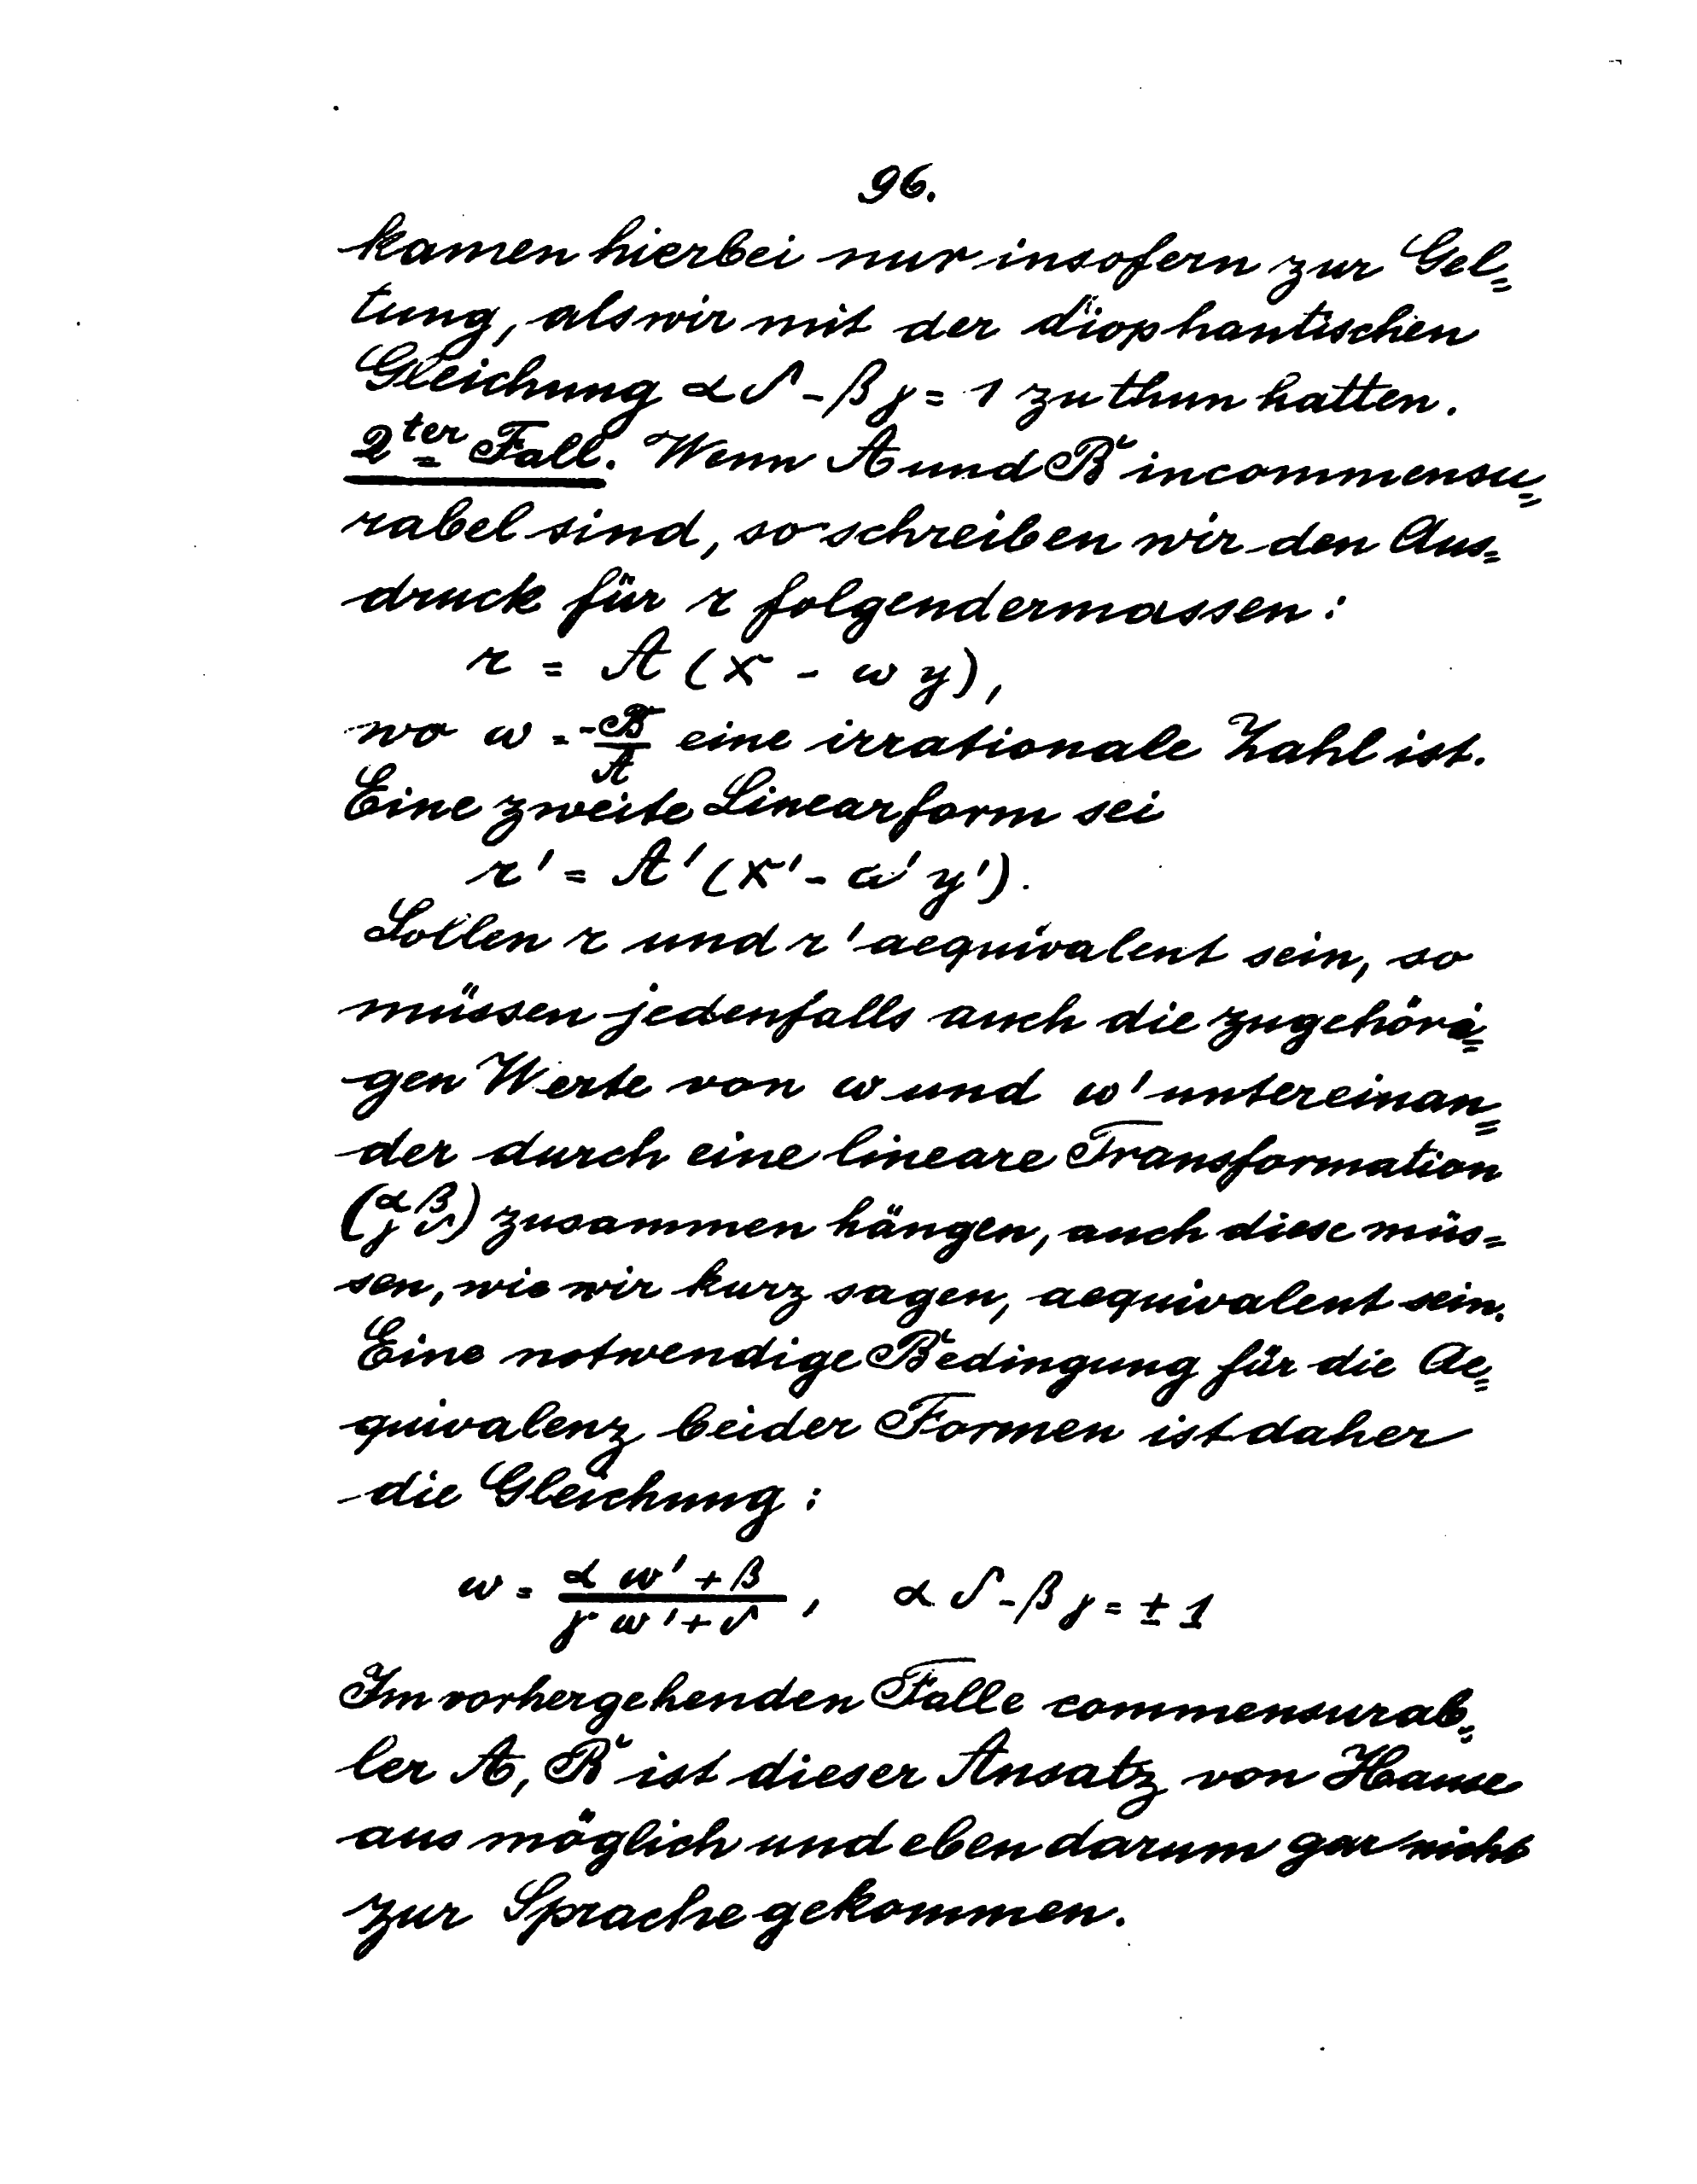 96.
kamen hierbei nur insofern zur Gel=
tung, als wir mit der diophantischen
Gleichung αδ - βγ = 1 zu thun hatten.
2ter Fall. Wenn A und B incommensu=
rabel sind, so schreiben wir den Aus=
druck für r folgendermassen:
r = A (x - ω y),
wo ω = -B/A eine irrationale Zahl ist.
Eine zweite Linearform sei
r' = A' (x' - ω' y').
Sollen r und r' aequivalent sein, so
müssen jedenfalls auch die zugehöri=
gen Werte von ω und ω' untereinan=
der durch eine lineare Transformation
(α β γ δ) zusammen hängen, auch diese müs=
sen, wie wir kurz sagen, aequivalent sein.
Eine notwendige Bedingung für die Ae=
quivalenz beider Formen ist daher
die Gleichung:
ω = (α ω' + β)/(γ ω' + δ), αδ - βγ = ± 1
Im vorhergehenden Falle commensurab=
ler A, B ist dieser Ansatz von Hause
aus möglich und eben darum gar nicht
zur Sprache gekommen.